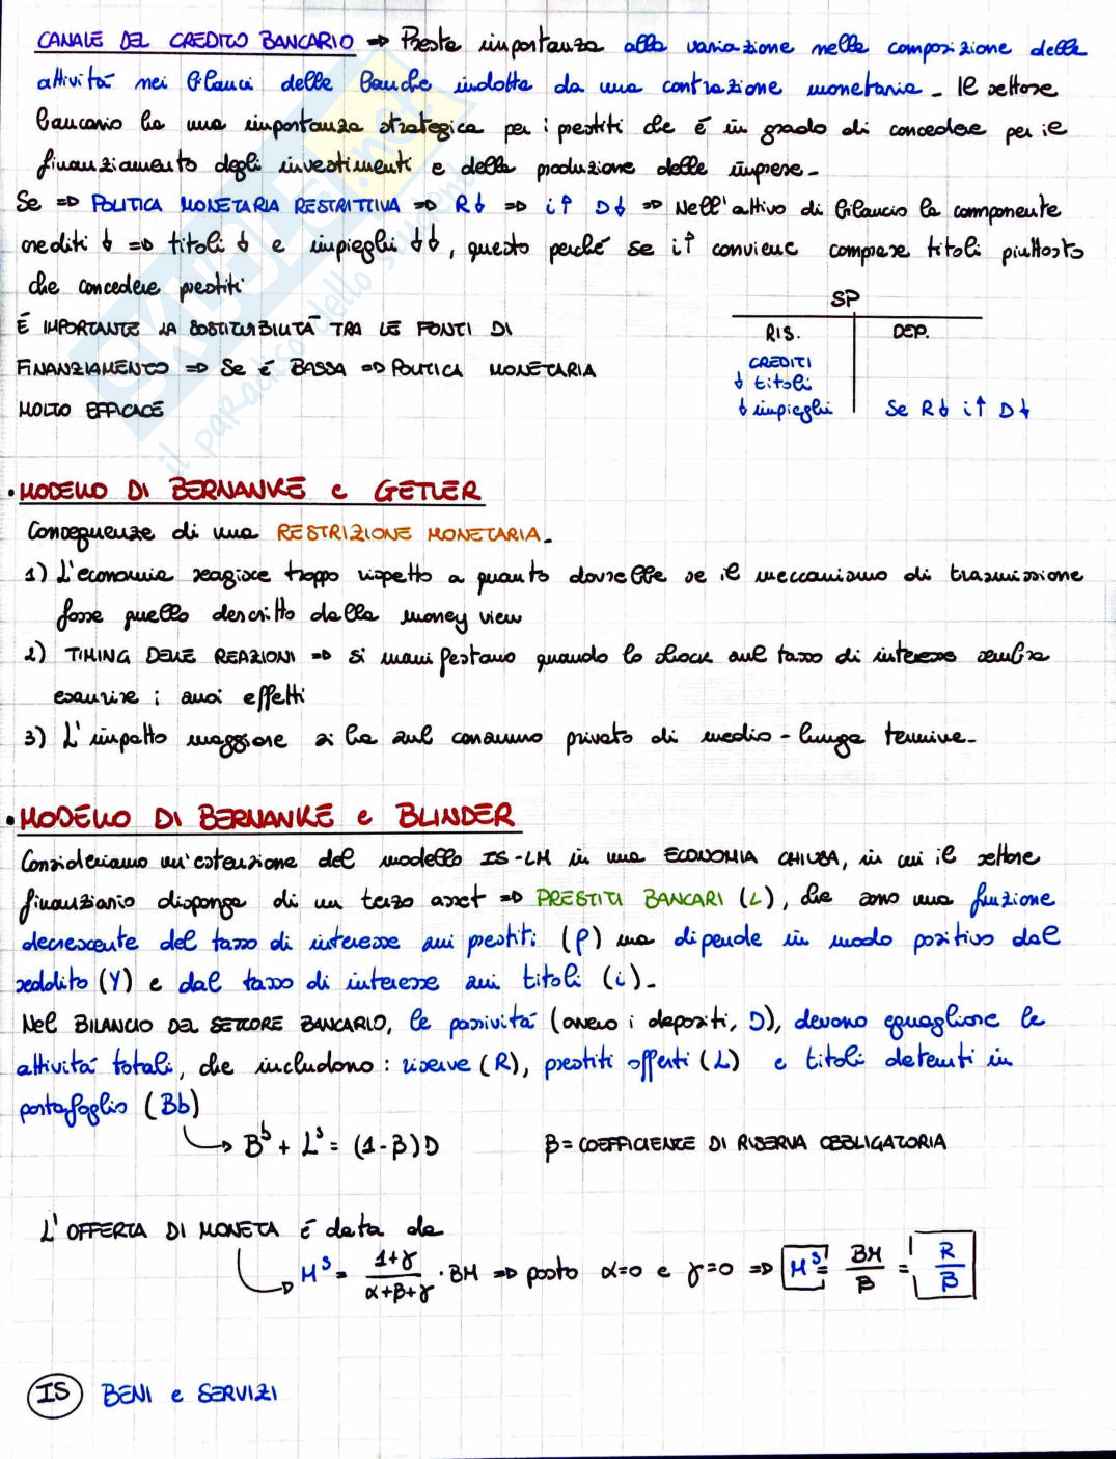 CANALE DEL CREDITO BANCARIO => Presta importanza alla variazione nella composizione delle
attività nei bilanci delle banche indotta da una contrazione monetaria. Il settore
bancario ha una importanza strategica per i prestiti che è in grado di concedere per il
finanziamento degli investimenti e della produzione delle imprese.
Se => POLITICA MONETARIA RESTRITTIVA => R↓ => i↑ D↓ => Nell'attivo di bilancio la componente
crediti ↓ => titoli ↓ e impieghi ↓↓, questo perché se i↑ conviene comprare titoli piuttosto
che concedere prestiti
SP
È IMPORTANTE LA SOSTITUIBILITÀ TRA LE FONTI DI
RIS. DEP.
FINANZIAMENTO => Se È BASSA => POLITICA MONETARIA
CREDITI
↓ titoli
MOLTO EFFICACE
↓ impieghi Se R↓ i↑ D↓
• MODELLO DI BERNANKE e GETLER
Conseguenze di una RESTRIZIONE MONETARIA.
1) L'economia reagisce troppo rispetto a quanto dovrebbe se il meccanismo di trasmissione
fosse quello descritto dalla money view
2) TIMING DELLE REAZIONI => si manifestano quando lo shock sul tasso di interesse sembra
esaurire i suoi effetti
3) L'impatto maggiore si ha sul consumo privato di medio-lungo termine.
• MODELLO DI BERNANKE e BLINDER
Consideriamo un'estensione del modello IS-LM in una ECONOMIA CHIUSA, in cui il settore
finanziario dispone di un terzo asset => PRESTITI BANCARI (L), che sono una funzione
decrescente del tasso di interesse sui prestiti (ρ) ma dipende in modo positivo dal
reddito (Y) e dal tasso di interesse sui titoli (i).
Nel BILANCIO DEL SETTORE BANCARIO, le passività (ovvero i depositi, D), devono eguagliare le
attività totali, che includono: riserve (R), prestiti offerti (L) e titoli detenuti in
portafoglio (Bb)
B^b + L^s = (1-β)D β = COEFFICIENTE DI RISERVA OBBLIGATORIA
L'OFFERTA DI MONETA È data da
M^s = (1+γ)/(α+β+γ) · BM => posto α=0 e γ=0 => M^s = BM/β = R/β
IS BENI e SERVIZI